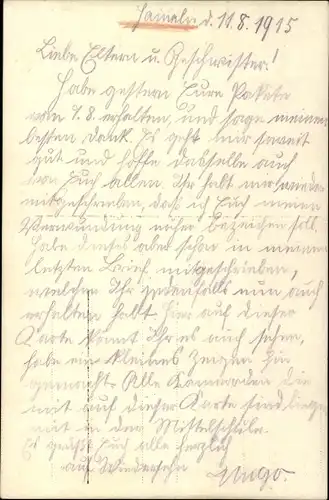 Hameln d. 11.8.1915
Liebe Eltern u. Geschwister!
Habe gestern Eure Pakete
vom 4.8. erhalten, und sage meinen
besten Dank. Es geht mir soweit
gut und hoffe dasselbe auch
von Euch allen. Ihr habt mir wieder
mitgeschrieben, daß ich Euch meine
Verwundung näher bezeichen soll.
Habe dieses aber schon in meinem
letzten Brief mitgeschrieben,
welchen Ihr jedenfalls nun auch
erhalten habt hier auf dieser
Karte könnt Ihr es auch sehen,
habe ein kleines Zeigen hin
gemacht. Alle Kameraden die
mit auf dieser Karte sind liegen
mit in der Mittelschule.
Es grüßt Euch alle herzlich
auf Wiedersehn Hugo.